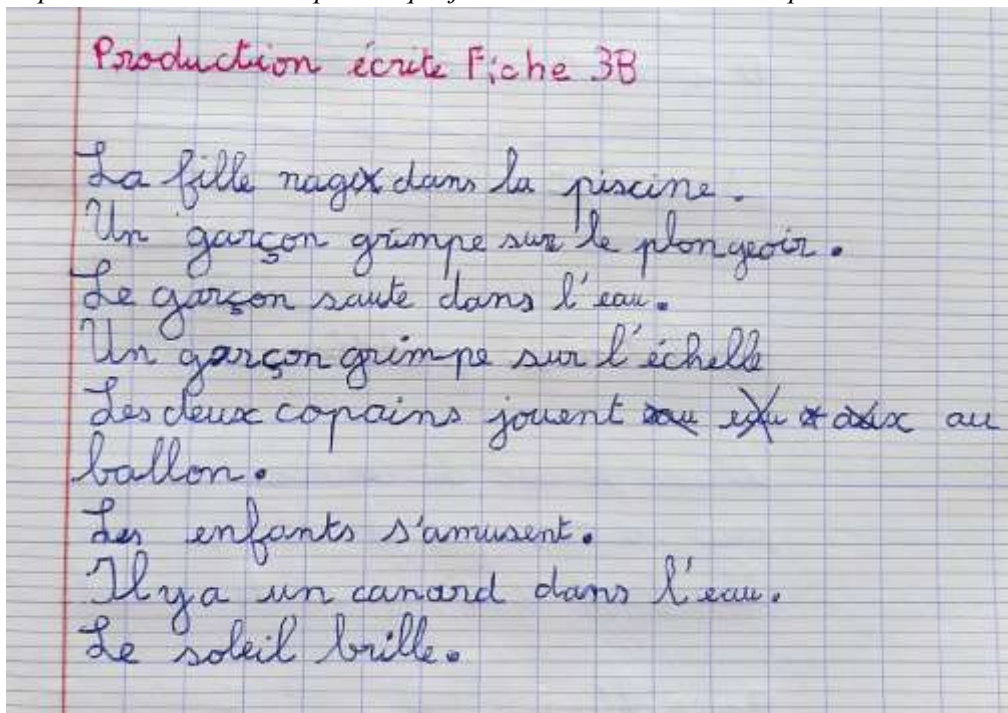 Production écrite Fiche 3B
La fille nage dans la piscine.
Un garçon grimpe sur le plongeoir.
Le garçon saute dans l'eau.
Un garçon grimpe sur l'échelle
Les deux copains jouent au
ballon.
Les enfants s'amusent.
Il y a un canard dans l'eau.
Le soleil brille.